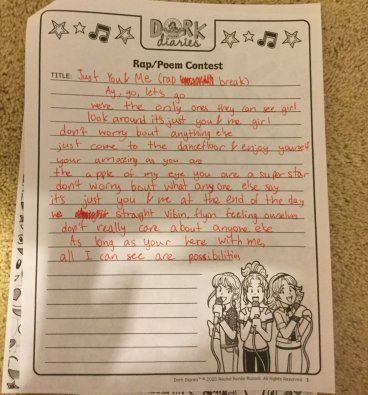 DORK
diaries
Rap/Poem Contest
TITLE: Just You & Me (rap break)
Ay, yo, let's go
we're the only ones they can see girl
look around it's just you & me girl
don't worry bout anything else
just come to the dancefloor & enjoy yourself
your ammazing as you are
the apple of my eye you are a super star
don't worry bout what any one else say
it's just you & me at the end of the day
we straight vibin, flyin feeling ourselves
don't really care about anyone else
As long as your here with me,
all I can see are possibilities
Dork Diaries™ © 2020 Rachel Renée Russell. All Rights Reserved. 3